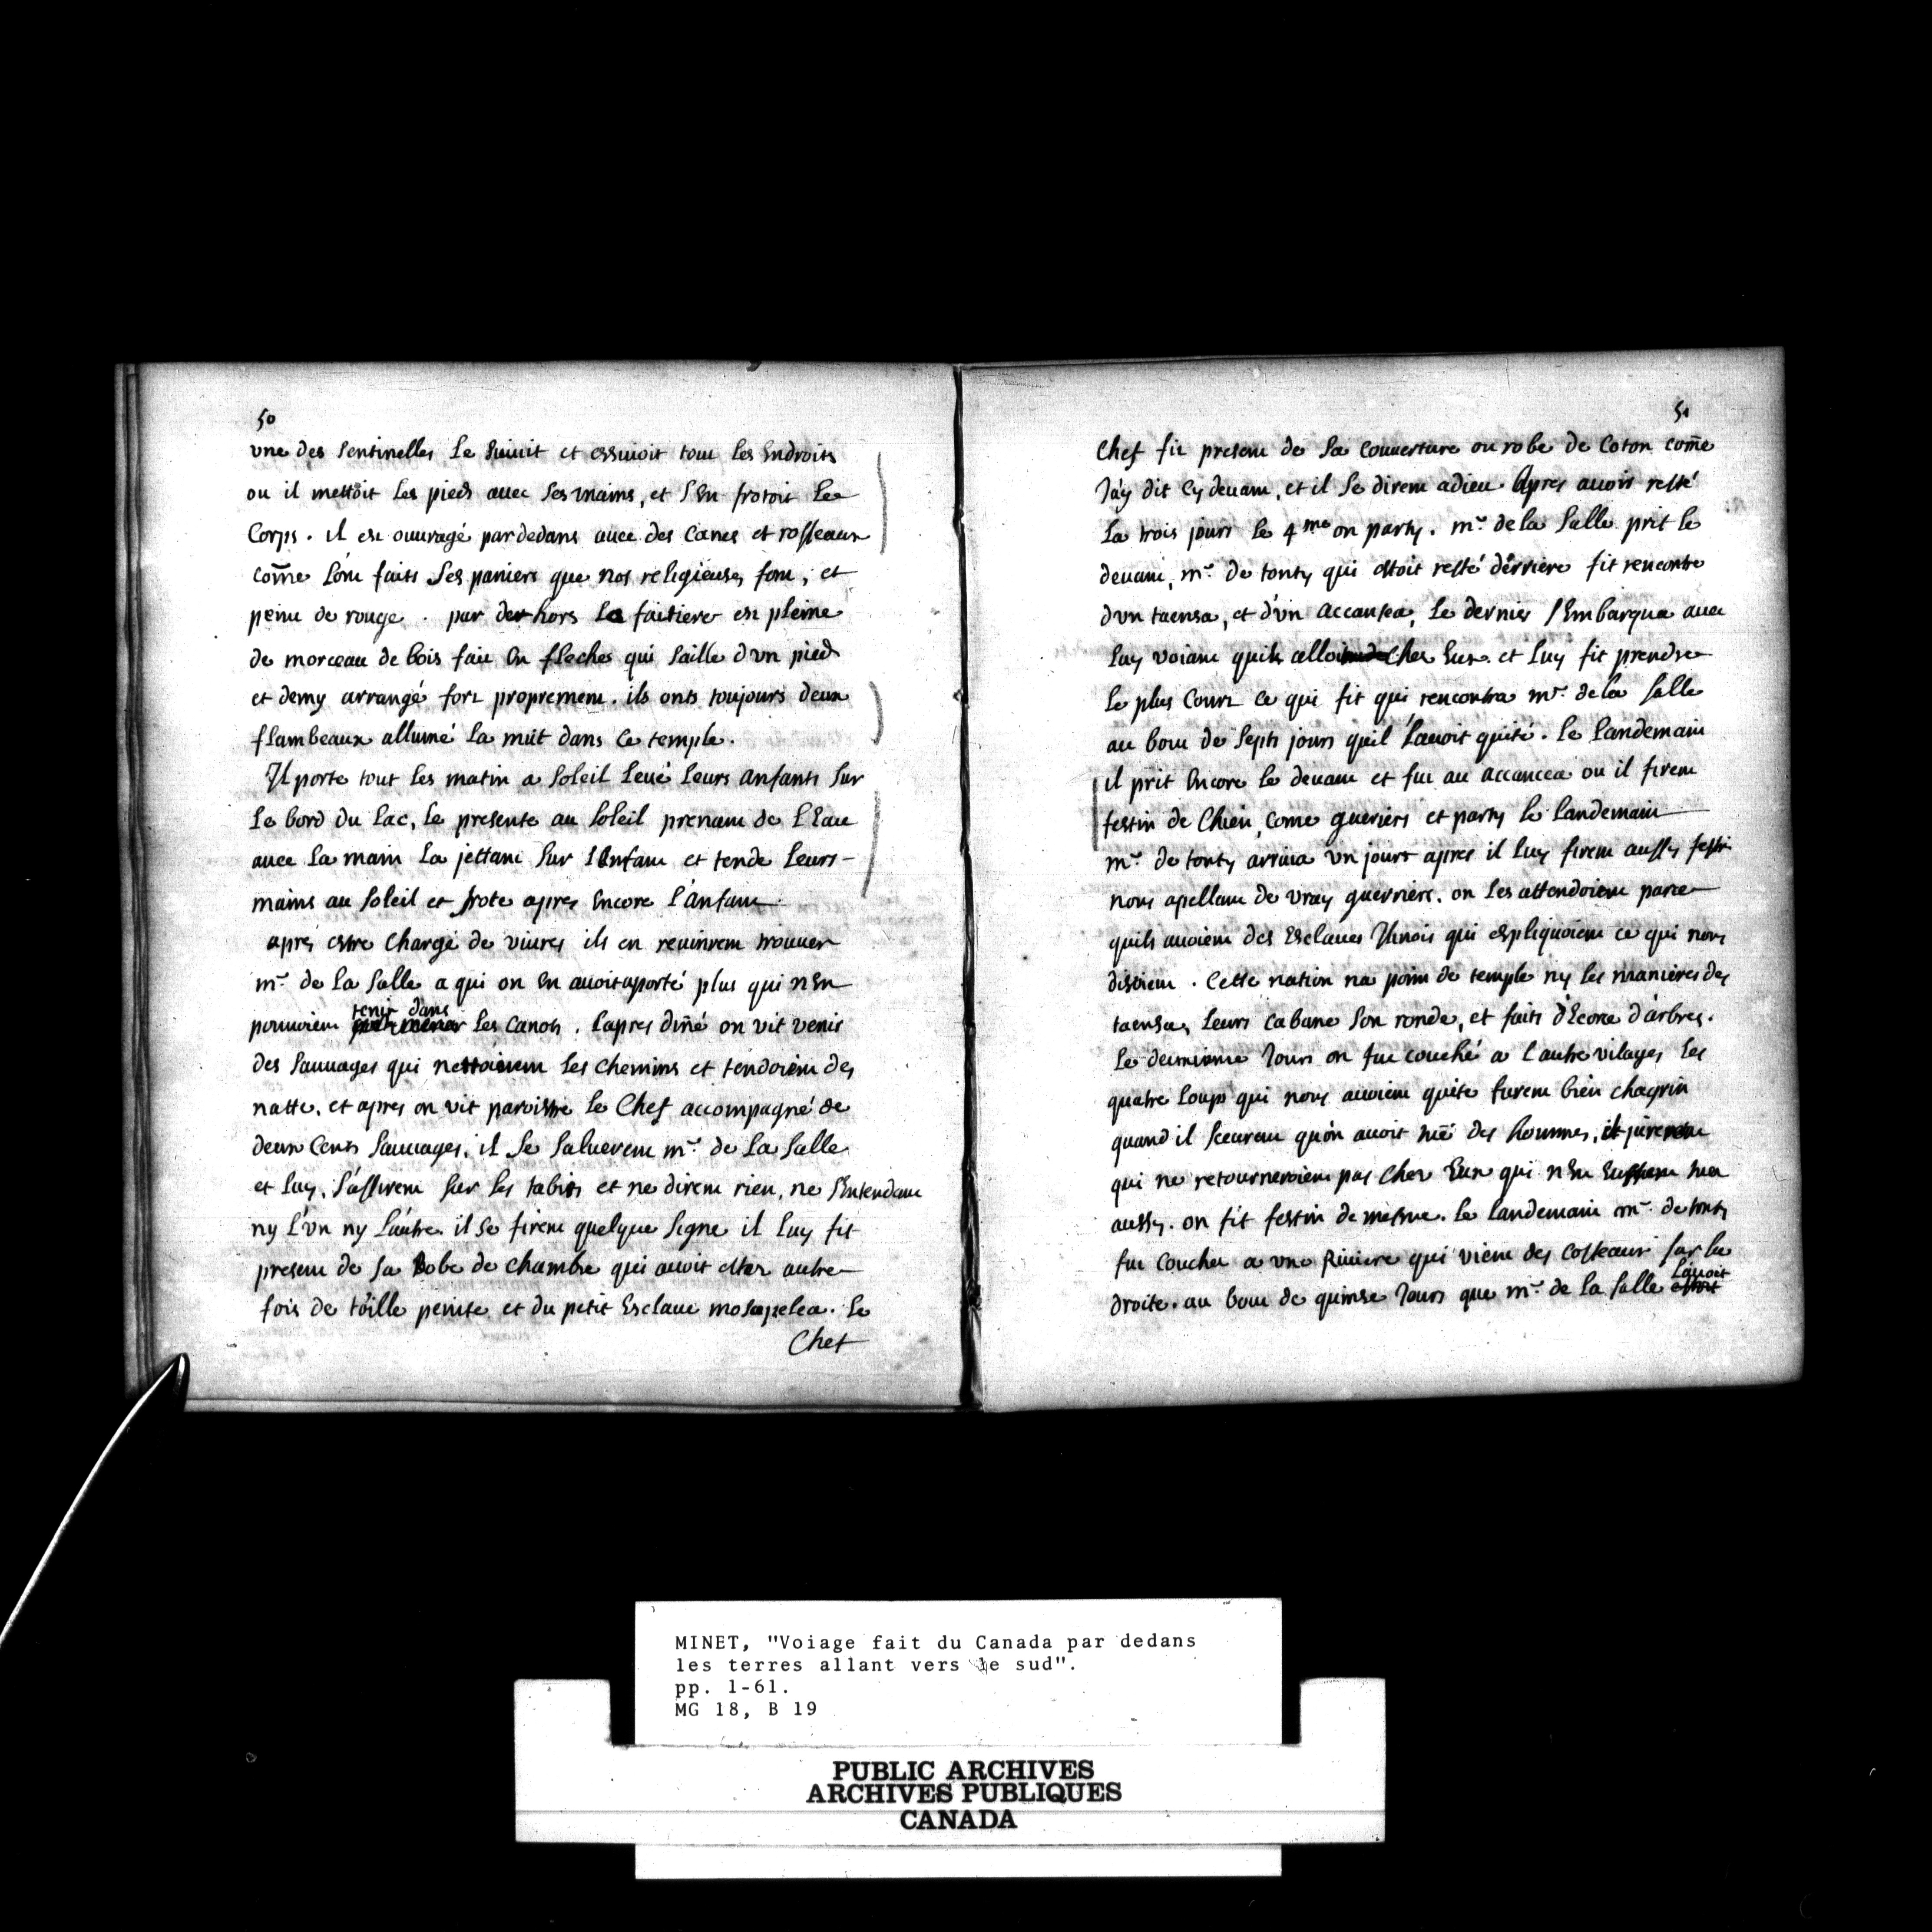 50
vne des sentinelles le suiuit et essuioit tout les endroits
ou il mettoit les pieds auec ses mains, et s'en frotoit le
corps. il est ouuragé par dedans auec des canes et rosseaux
come l'ont faits les paniers que nos religieuses font, et
peint de rouge. par dechors la faitiere est pleine
de morceau de bois fait en fleches qui saille d'vn pied
et demy arrangé fort proprement. ils onts toujours deux
flambeaux allumé la nuit dans ce temple.
Il porte tout les matin a soleil leué leurs anfants sur
le bord du lac, le presente au soleil prenant de l'eau
auec la main la jettant sur l'enfant et tende leurs
mains au soleil et frote apres encore l'anfant
aprés estre chargé de viures ils en reuinrent trouuer
mr. de la salle a qui on en auoit aporté plus qui n'en
pouuoient tenir dans les canots. l'apres diné on vit venir
des sauuages qui nettoierent les chemins et tendoient des
natte, et apres on vit paroistre le chef accompagné de
deux cents sauuages. il se saluerent mr. de la salle
et luy, s'assirent sur les tabits et ne dirent rien, ne s'entendant
ny l'vn ny l'autre. il se firent quelque signe il luy fit
present de sa Robe de chambre qui auoit ester autre
fois de toille peinte et du petit esclaue mosapelea. le
Chef
51
Chef fit present de sa couuerture ou robe de coton come
J'ay dit cy deuant, et il se dirent adieu Apres auoir resté
la trois jours le 4me on party. mr. de la salle prit le
deuant, mr. de tonty qui estoit resté dérriere fit rencontre
d'vn taensa, et d'vn accansea, le dernier s'embarqua auec
luy voiant quils alloit chez eux. et luy fit prendre
le plus court ce qui fit qui rencontra mr. de la salle
au bout de septs jours qu'il l'auoit quité. le landemain
il prit encore le deuant et fut au accancea ou il firent
festin de chien, come gueriers et party le landemain
mr. de tonty arriua vn jours apres il luy firent aussy festin
nous apellant de vray guerriers. on les attendoient parce
quils auoient des Esclaues Ilinois qui expliquoient ce qui nous
disoient. Cette nation na point de temple ny les manieres des
taensa, leurs cabane son ronde, et faits d'Ecorce d'arbres.
le deuxieme Jours on fut couché a l'autre vilages les
quatre loups qui nous auoient quité furent bien chagrin
quand il sceurent qu'on auoit tué des hommes, il jurerent
qui ne retourneroient pas chez eux qui n'en eussent tué
aussy. on fit festin de mesme. le landemain mr. de tonty
fut coucher a vne Riuiere qui vient des costeaux sur la
droite. au bout de quinse Jours que mr. de la salle l'auoit
MINET, "Voiage fait du Canada par dedans
les terres allant vers le sud".
pp. 1-61.
MG 18, B 19
PUBLIC ARCHIVES
ARCHIVES PUBLIQUES
CANADA